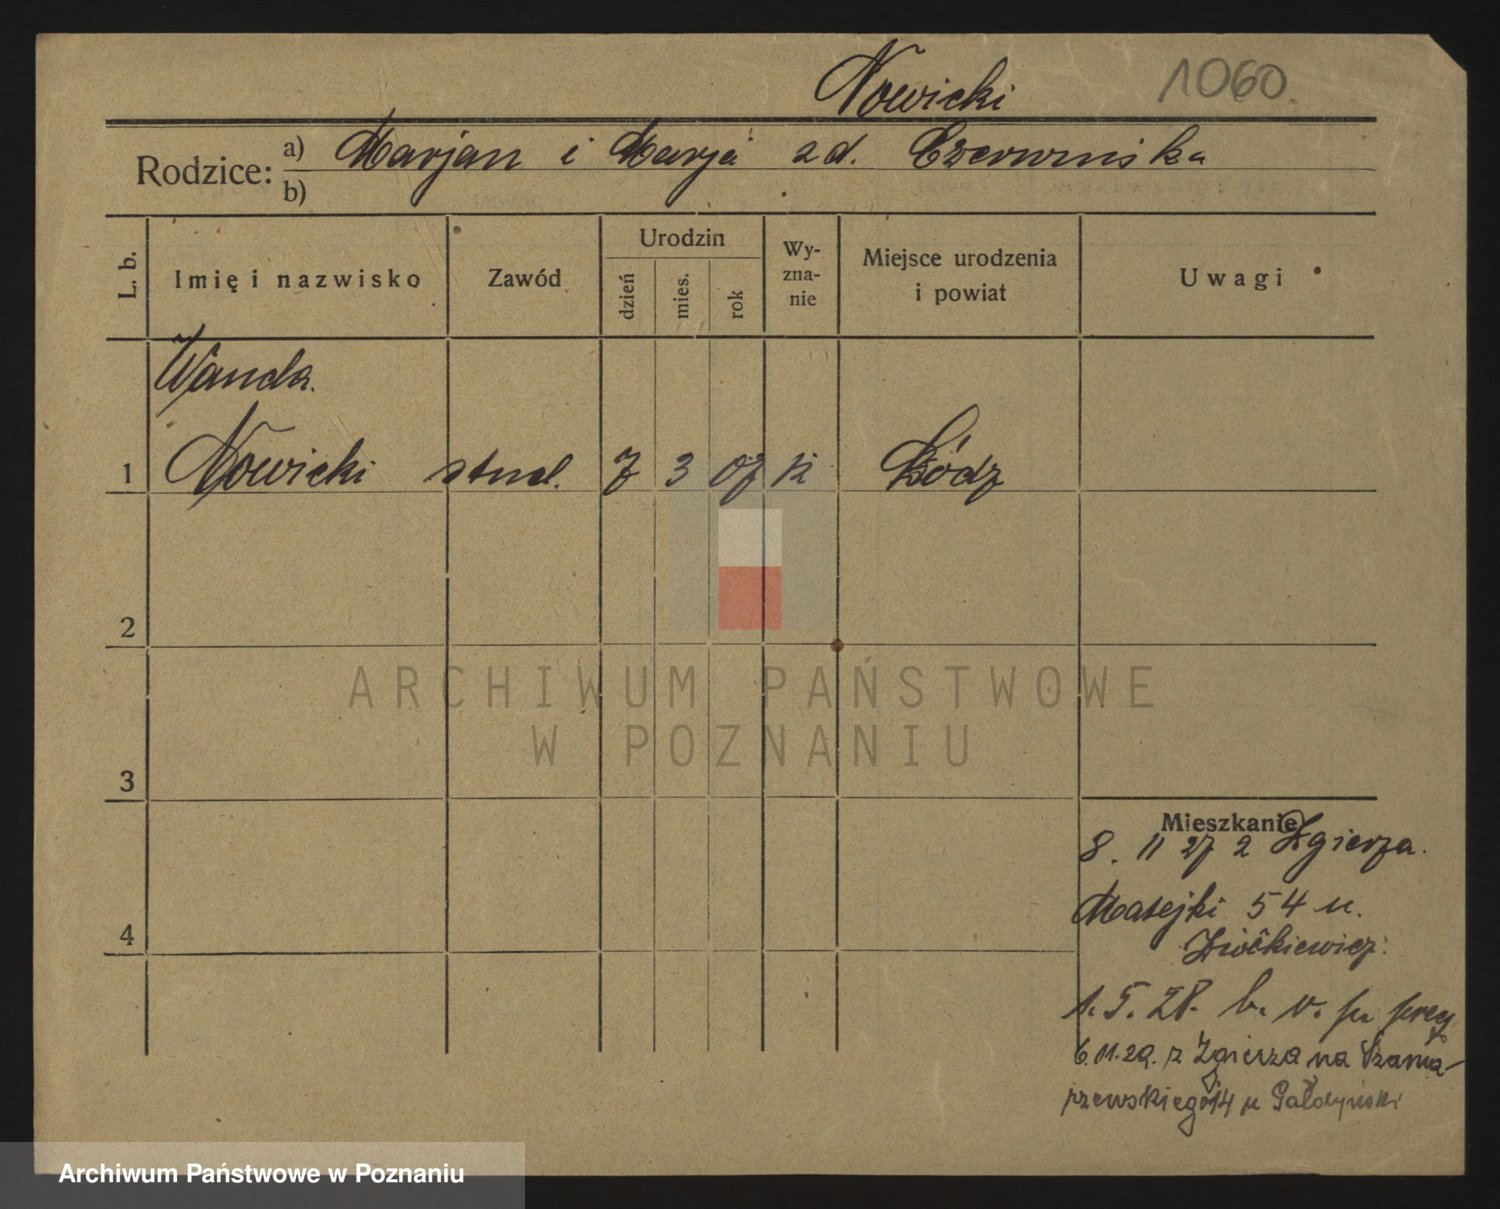 Nowicki 1060
Rodzice: a) Marjan i Marja zd. Czerwińska
b)
L. b. Imię i nazwisko Zawód Urodzin dzień mies. rok Wy-zna-nie Miejsce urodzenia i powiat Uwagi
Wanda.
1 Nowicki stud. 7 3 07 k Łódz
2
ARCHIWUM PAŃSTWOWE
W POZNANIU
3
Mieszkanie
8. 11 27 z Zgierza.
Matejki 54 u.
4
1. 5. 28. b. v.
6.11.29. z Zgierza na Szama-
rzewskiego 14 u Gałdyński
Archiwum Państwowe w Poznaniu